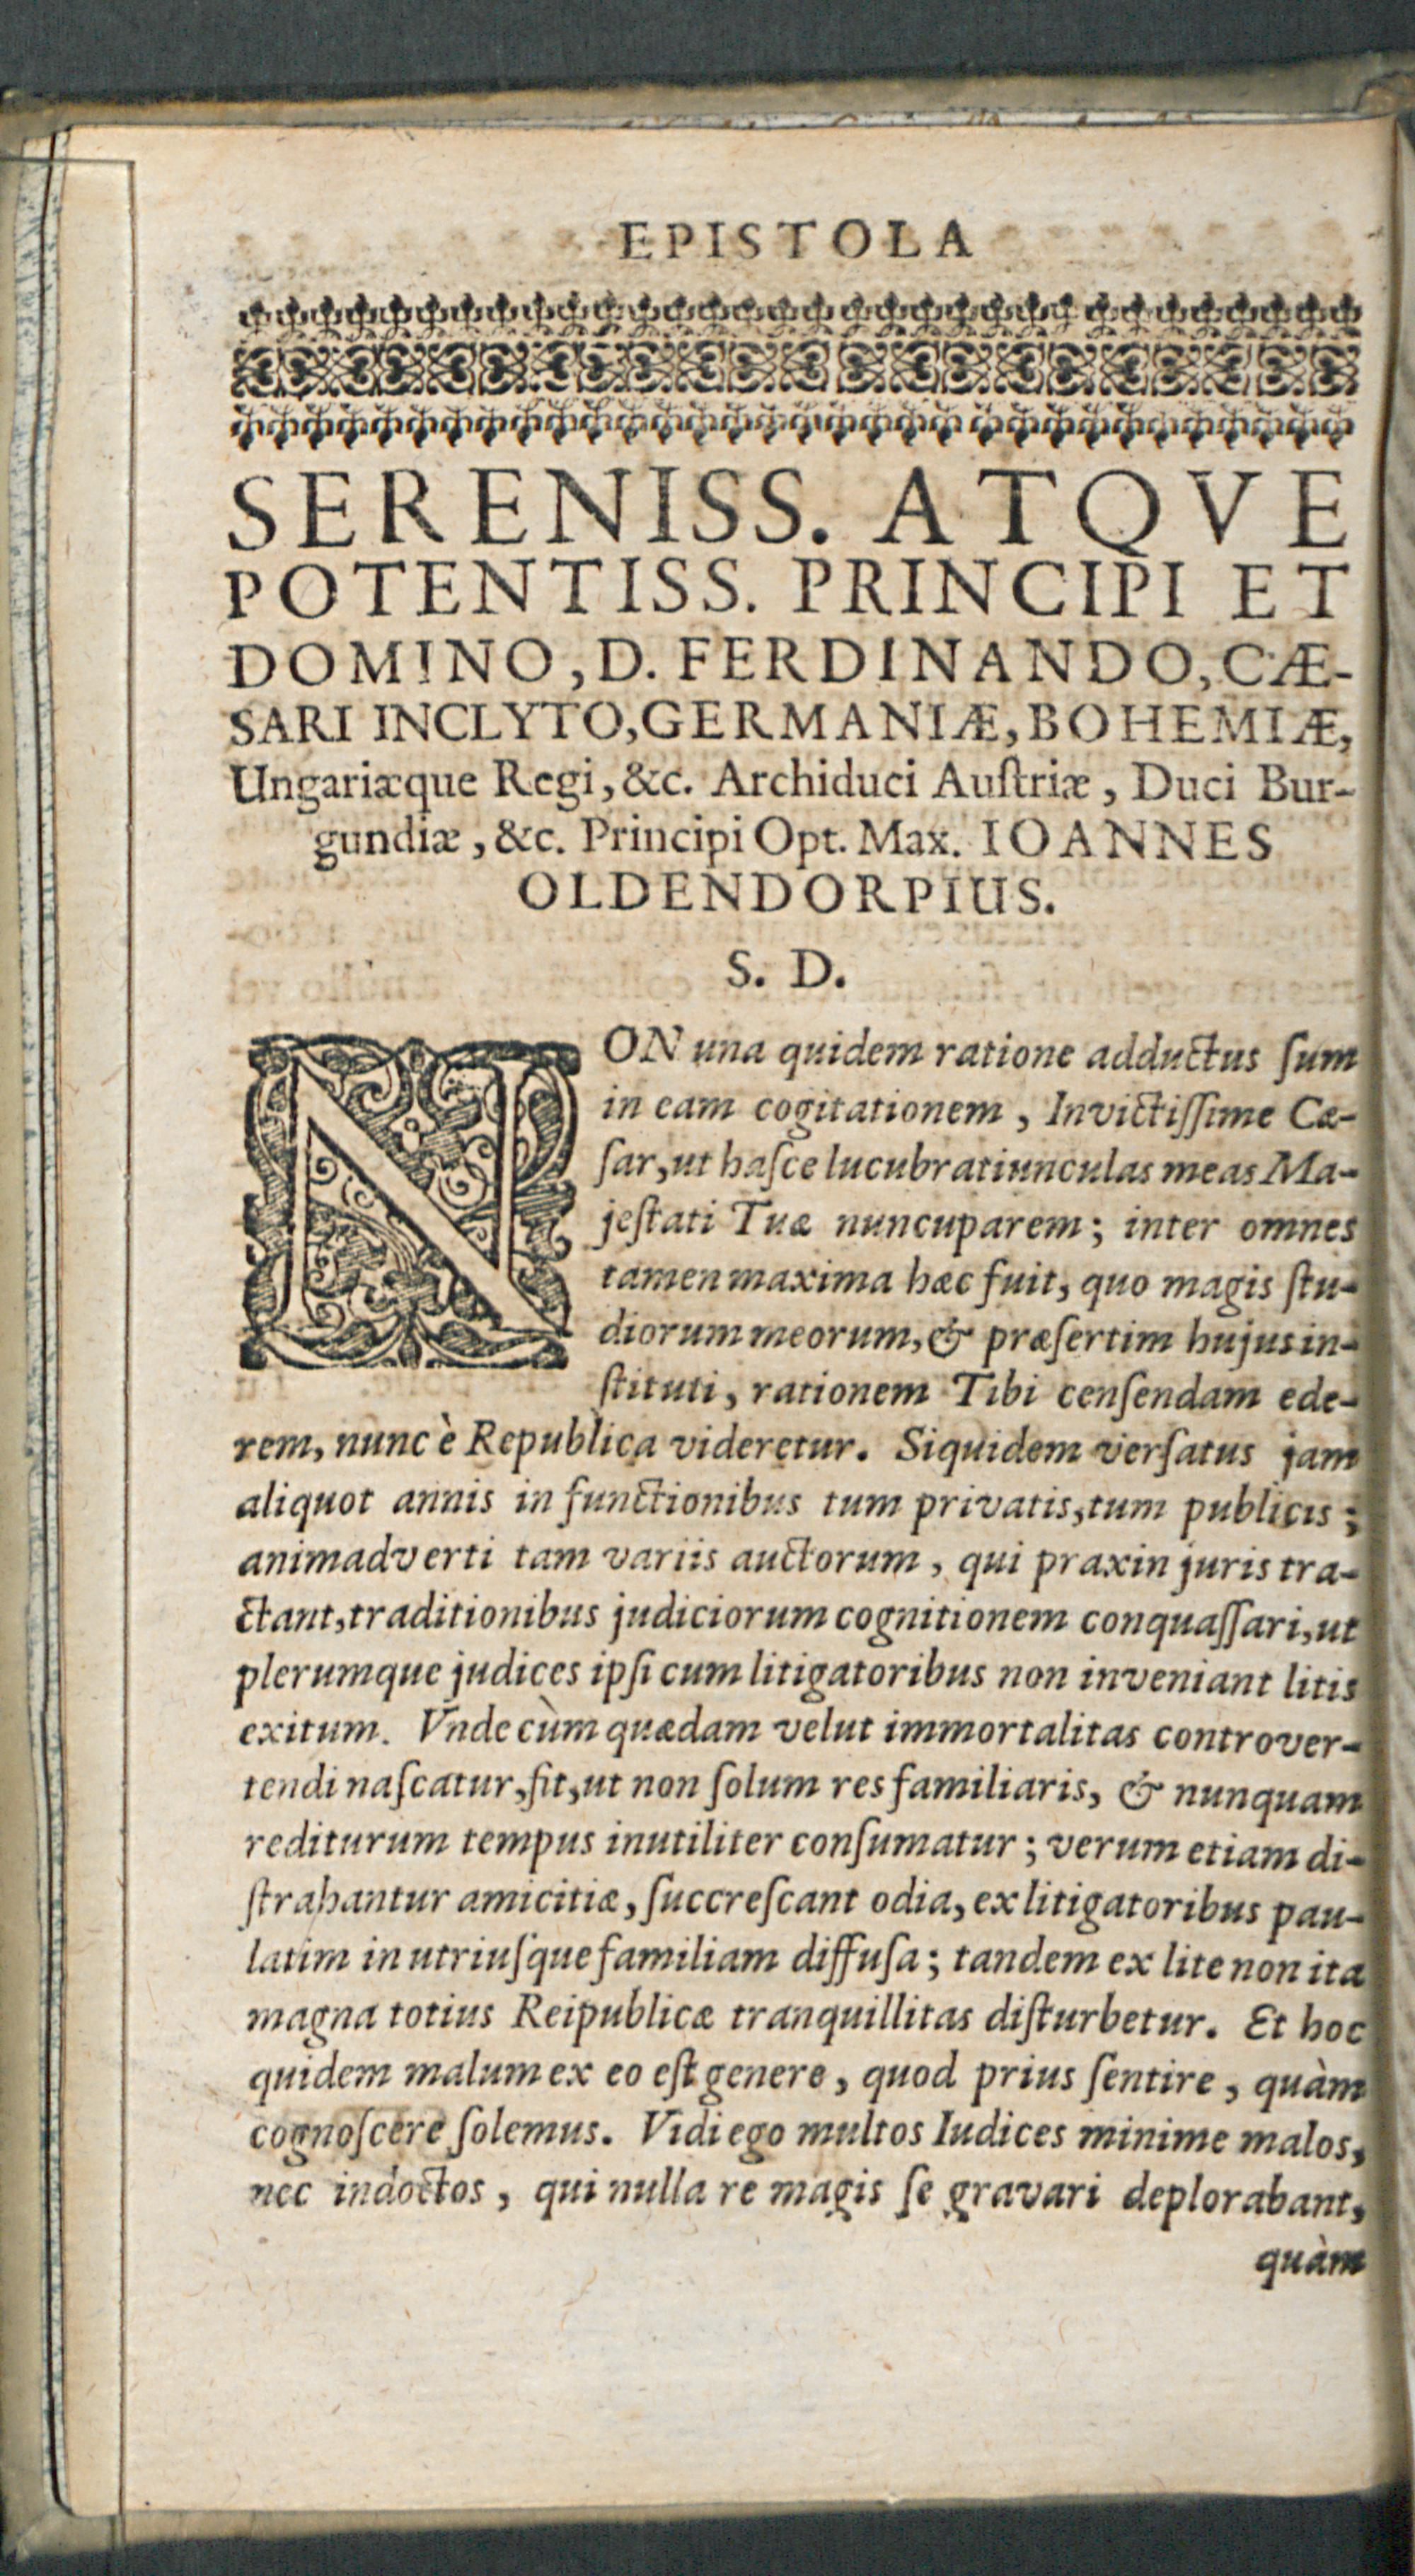 EPISTOLA
SERENISS. ATQVE
POTENTISS. PRINCIPI ET
DOMINO, D. FERDINANDO, CÆ-
SARI INCLYTO, GERMANIÆ, BOHEMIÆ,
Ungariæque Regi, &c. Archiduci Auſtriæ, Duci Bur-
gundiæ, &c. Principi Opt. Max. IOANNES
OLDENDORPIUS.
S. D.
NON una quidem ratione adductus ſum
in eam cogitationem, Invictiſſime Cæ-
ſar, ut haſce lucubratiunculas meas Ma-
jeſtati Tuæ nuncuparem; inter omnes
tamen maxima hæc fuit, quo magis ſtu-
diorum meorum, & præſertim hujus in-
ſtituti, rationem Tibi cenſendam ede-
rem, nunc è Republica videretur. Siquidem verſatus jam
aliquot annis in functionibus tum privatis, tum publicis;
animadverti tam variis auctorum, qui praxin juris tra-
ctant, traditionibus judiciorum cognitionem conquaſſari, ut
plerumque judices ipſi cum litigatoribus non inveniant litis
exitum. Vnde cùm quædam velut immortalitas controver-
tendi naſcatur, fit, ut non ſolum res familiaris, & nunquam
rediturum tempus inutiliter conſumatur; verum etiam di-
ſtrahantur amicitiæ, ſuccreſcant odia, ex litigatoribus pau-
latim in utriuſque familiam diffuſa; tandem ex lite non ita
magna totius Reipublicæ tranquillitas diſturbetur. Et hoc
quidem malum ex eo eſt genere, quod prius ſentire, quàm
cognoſcere ſolemus. Vidi ego multos Iudices minime malos,
nec indoctos, qui nulla re magis ſe gravari deplorabant,
quàm